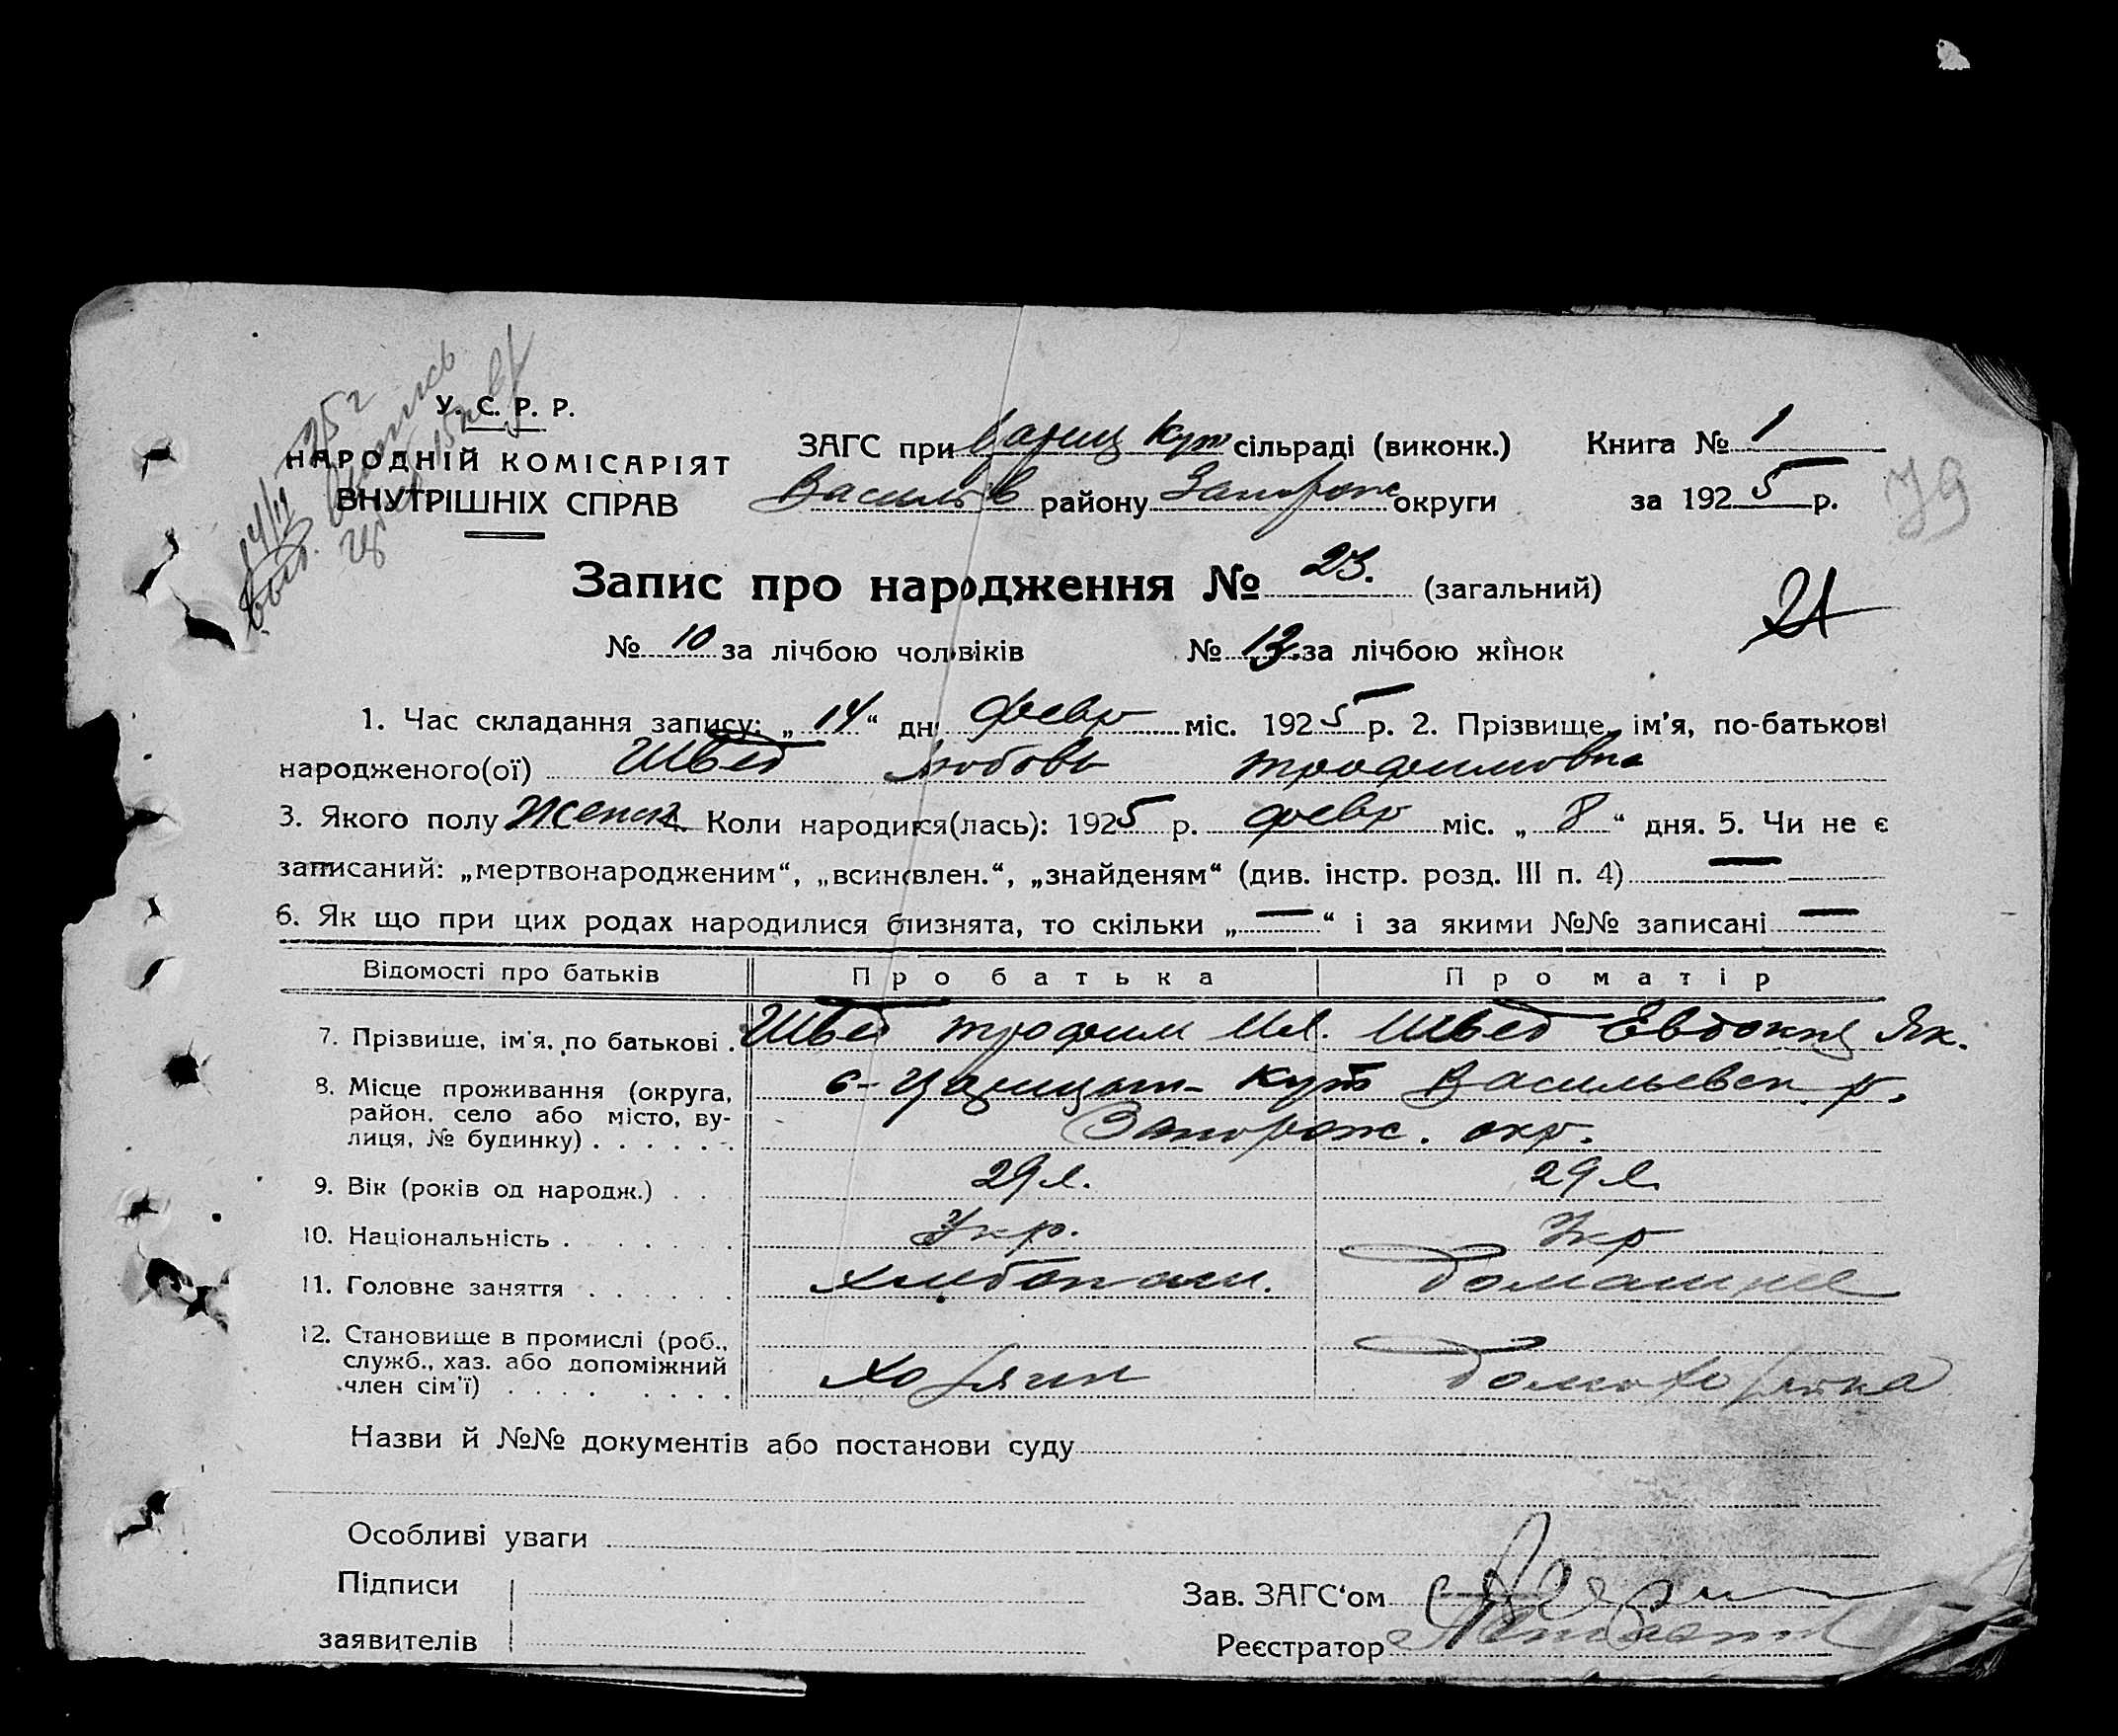 25 г
14/II
У. С. Р. Р.
НАРОДНІЙ КОМІСАРІЯТ
ВНУТРІШНІХ СПРАВ
ЗАГС при Цариц Кут сільраді (виконк.) Книга № 1
Васильв району Запорож округи за 1925 р.
79
Запис про народження № 23. (загальний)
21
№ 10 за лічбою чоловіків № 13. за лічбою жінок
1. Час складання запису: „14“ дн февр міс. 1925 р. 2. Прізвище, ім'я, по-батькові
народженого(ої) Швед Любовь Трофимовна
3. Якого полу Женск Коли народився(лась): 1925 р. февр міс. „8“ дня. 5. Чи не є
записаний: „мертвонародженим“, „всиновлен.“, „знайденям“ (див. інстр. розд. III п. 4) —
6. Як що при цих родах народилися близнята, то скільки „—“ і за якими №№ записані —
Відомості про батьків Про батька Про матір
7. Прізвише, ім'я, по батькові . Швед Трофим Ил. Швед Евдокия Як.
8. Місце проживання (округа, с-Царицын-Кут Васильевск р.
район, село або місто, ву-
лиця, № будинку) . . . . . . Запорож. окр.
9. Вік (років од народж.) . . . 29 л. 29 л.
10. Національність . . . . . . Укр. Укр
11. Головне заняття . . . . . . хлибопаш. домашнее
12. Становище в промислі (роб.,
служб., хаз. або допоміжний
член сім'ї) . . . . . . . . хозяин домохозяйка
Назви й №№ документів або постанови суду
Особливі уваги
Підписи
заявителів
Зав. ЗАГС'ом
Реєстратор